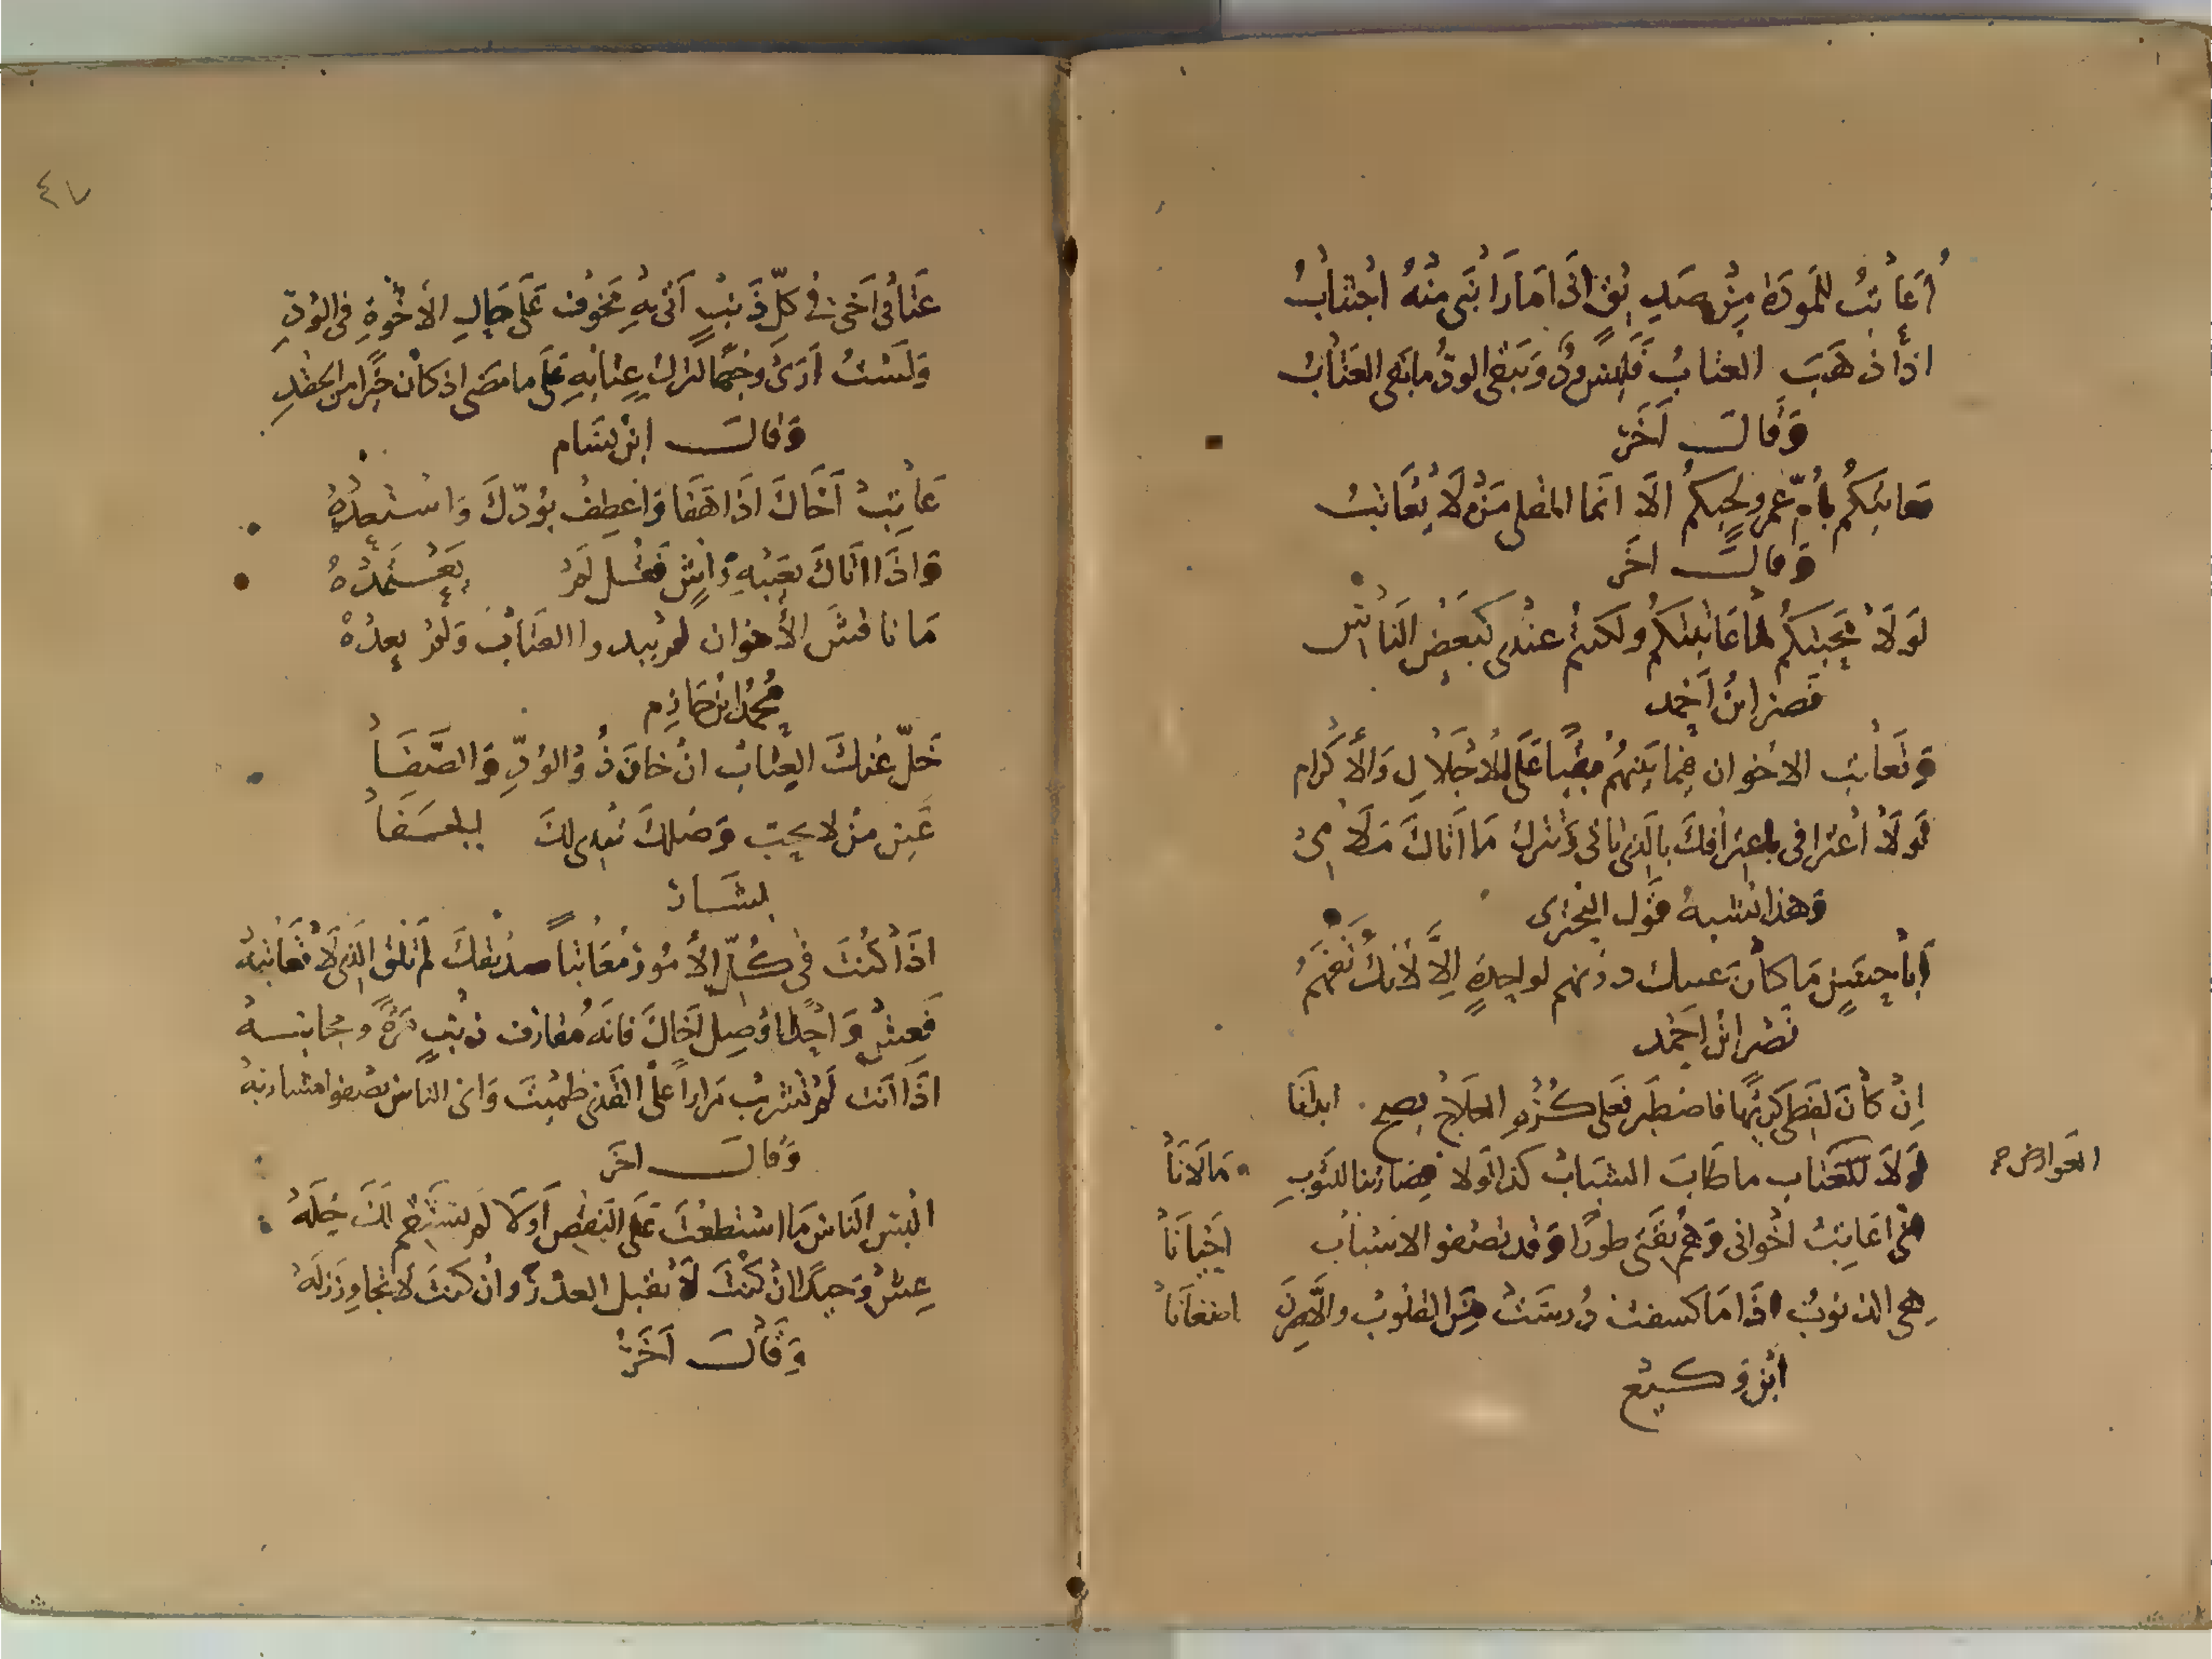 أُعَاتِبُ المَودَة مِنْ صَدِيقٍ اذَا مَا رَابَنِى مِنْهُ اجْتِنَابُ
اذا ذهَبَ العتابُ فَلَيْسَ ودٌّ وَيَبقى الودُّ ما بقى العتَابُ
وَقالَ آخَر
نعاتبكُم يا أمّ عمرو لحبكمُ الَا انَما المقلى مَنْ لَا يُعَاتبُ
وَقالَ اخَر
لَولَا مَحَبتكُم لما عَاتبتكُم ولكنتُم عندى كبَعضِ النَاسِ
نَصر ابنُ أحمد
وَتعَاتب الاخوان فيما بَينهُم مبقيا عَلى الاجْلَالِ وَالأكرام
لَولَا اعْترافى باعترافكَ بالذى تاتى وَتترك مَا اتاكَ مَلَامِى
وَهذا يشبهُ قَول البحترى
أبَا حَسَنٍ مَا كانَ عتبك دونهم لواحدةٍ إلَّا لأنكَ تفهَمُ
نَصْر ابْن احَمْد
اِنْ كانَ لفظى كريهًا فاصْطبَر فعَلى كُرْهِ العلَاج يصح ابدانَا
العوارض
لَولَا العتاب ما طَابَ الشبَاب كذا لَولا قصَارتنا للثوبِ مَا لَانَا
انى اعَاتِبُ اخْوانى وَهُم ثقَتى طورًا وَقد تصْقَو الاسْيَاف احْيَانَا
هى الذنوبُ اذَا مَا كشفت دُرسَتْ مِنَ القلوبِ والَّا صِرْنَ اضغَانَا
ابْن وَكيع
٤٧
عتَابى اخى فى كلِّ ذَنبٍ اتى بهِ مَخوف عَلى حَالِ الأخْوةِ فى الودِّ
وَلَسْتُ ارَى وجْهًا لترك عِتابهِ عَلى ما مضى اذ كان خيرًا من الحقدِ
وَقالَ ابن بسَام
عَاتِبْ أخَاكَ اذَا هَفَا وَاعْطِفْ بوُدّكَ وَاسْتعدْهُ
وَاذَا اتَاكَ بعَيْبهِ وَاشٍ فقُل لَمْ يَعْتمدْهُ
مَا نَاقشَ الأخوان لم يبدوا العتَابَ وَلمْ يعدْهُ
مُحمد ابن حَازِم
خَلِّ عَنكَ العِتابَ انْ خانَ ذُو الوُدِّ وَالصَّفَا
عَين مَنْ لا يحِبّ وَصْلكَ تبْدى لكَ الجفَا
بشَار
اذَا كُنْتَ فى كُلِّ الأُمُور مُعَاتباً صديقكَ لَم تلقَ الذى لَا تُعَاتبهْ
فَعِشْ وَاحِدًا اوْ صِلْ اخَاكَ فانه مُقارف ذنبٍ مَرةً ومجانبهْ
اذَا انت لَمْ تشرَب مرَاراً عَلى القَذى ظمِئتَ وَاى الناس تصْفو مشاربهْ
وَقالَ اخَر
البس النَاسَ مَا اسْتطعْتَ عَلى النقْصِ وَالَا لَم تسْتَقِم لكَ خِلَهْ
عِشْ وَحيدًا انْ كنْتَ لَا تقبل العذرَ وان كنتَ لَا تجاوِز زَلَهْ
وَقَالَ اخَر